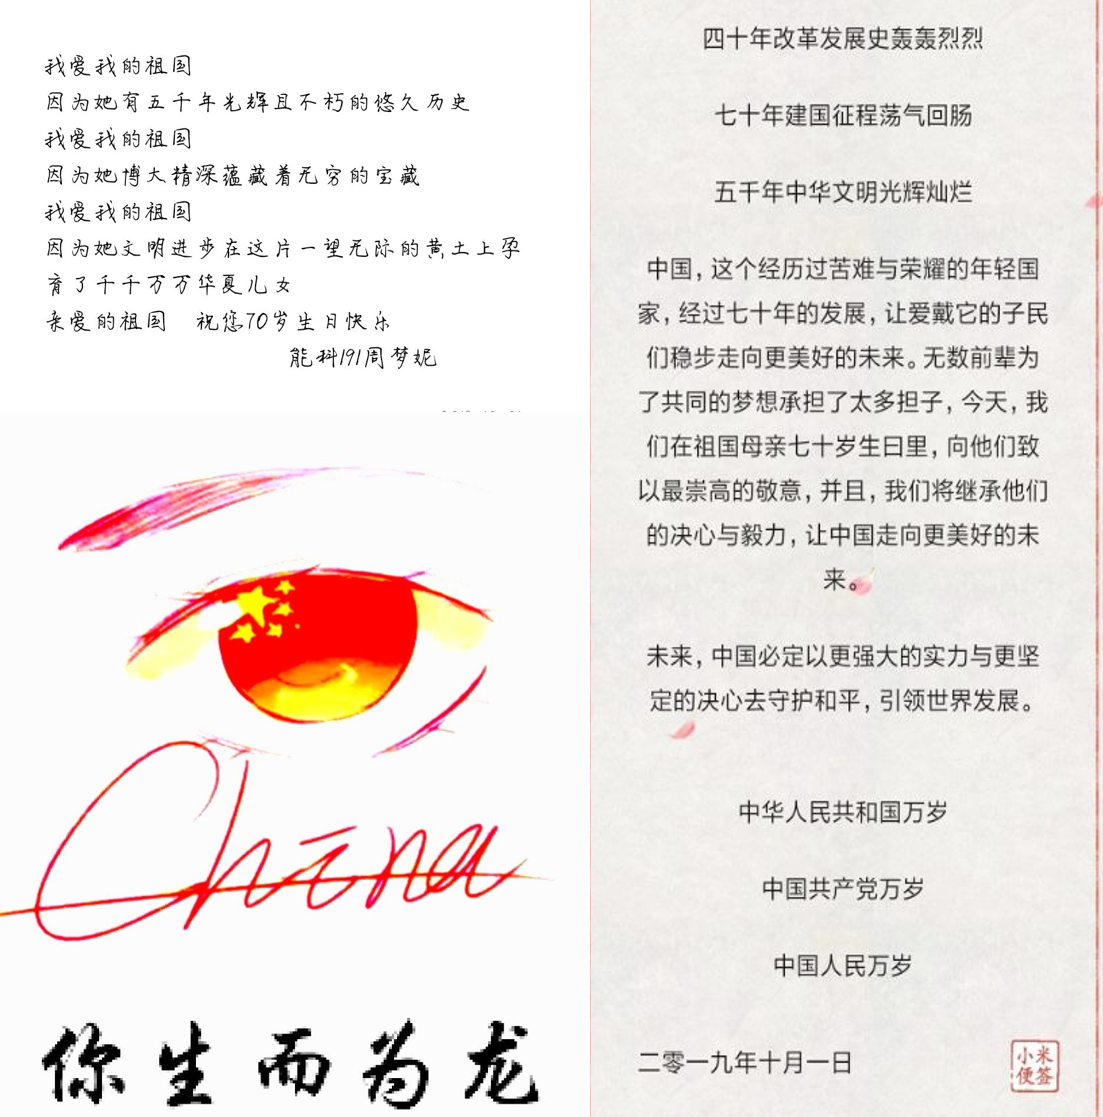 我爱我的祖国
因为她有五千年光辉且不朽的悠久历史
我爱我的祖国
因为她博大精深蕴藏着无穷的宝藏
我爱我的祖国
因为她文明进步在这片一望无际的黄土上孕
育了千千万万华夏儿女
亲爱的祖国 祝您70岁生日快乐
能科191周梦妮
China
你生而为龙
四十年改革发展史轰轰烈烈
七十年建国征程荡气回肠
五千年中华文明光辉灿烂
中国，这个经历过苦难与荣耀的年轻国
家，经过七十年的发展，让爱戴它的子民
们稳步走向更美好的未来。无数前辈为
了共同的梦想承担了太多担子，今天，我
们在祖国母亲七十岁生日里，向他们致
以最崇高的敬意，并且，我们将继承他们
的决心与毅力，让中国走向更美好的未
来。
未来，中国必定以更强大的实力与更坚
定的决心去守护和平，引领世界发展。
中华人民共和国万岁
中国共产党万岁
中国人民万岁
二零一九年十月一日
小米
便签